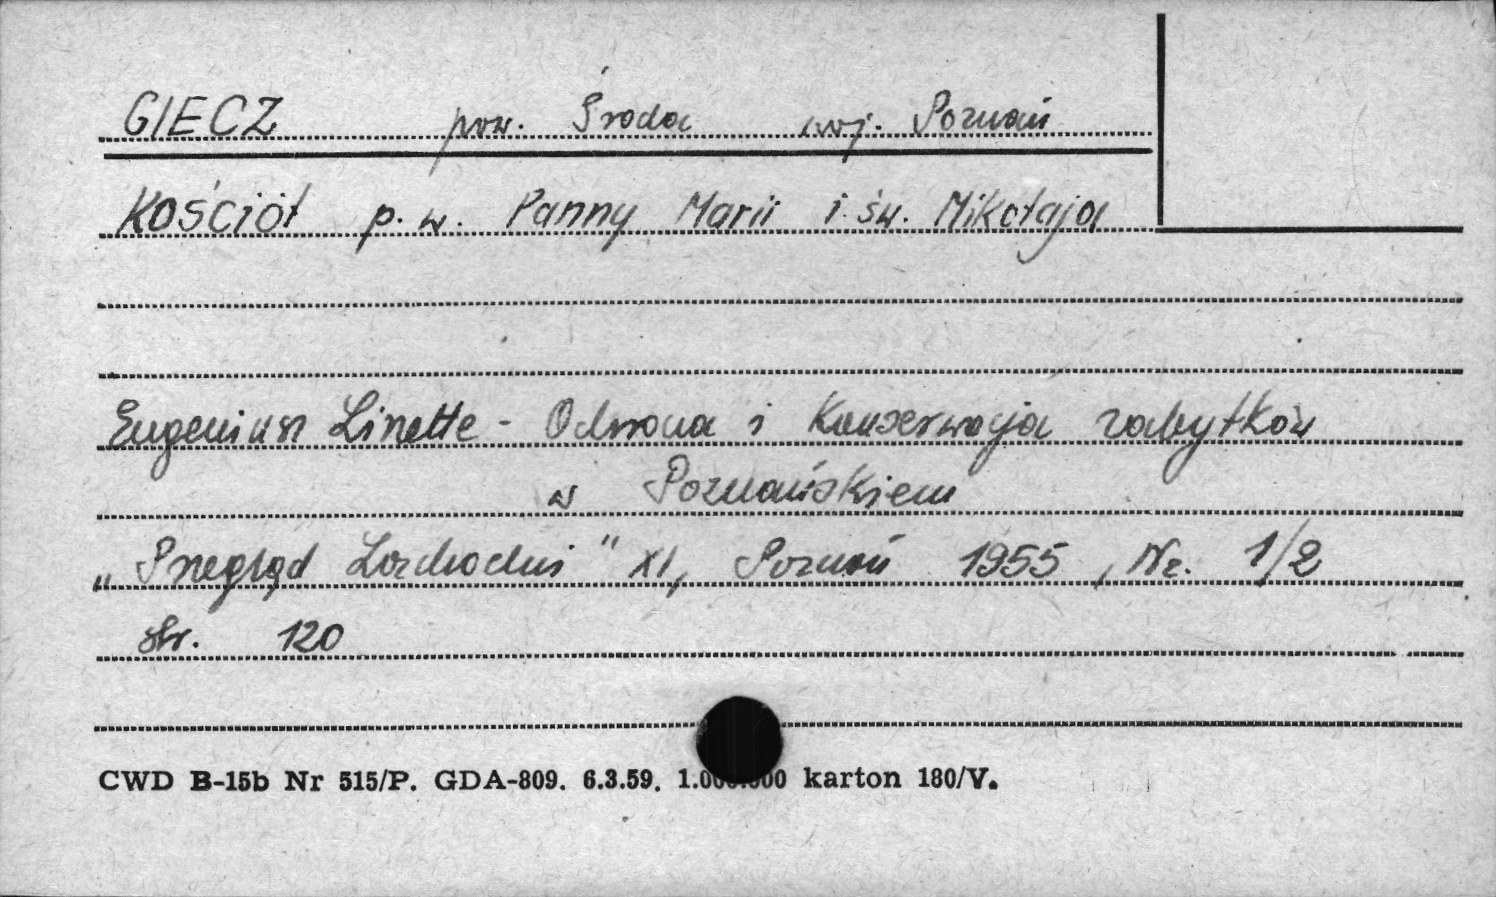 GIECZ pow. Środa woj. Poznań
Kościół p.w. Panny Marii i św. Mikołaja
Eugeniusz Linette - Ochrona i Konserwacja zabytków
w Poznańskiem
„Przegląd Zachodni" XI, Poznań 1955, Nr. 1/2
str. 120
CWD B-15b Nr 515/P. GDA-809. 6.3.59. 1.000.000 karton 180/V.